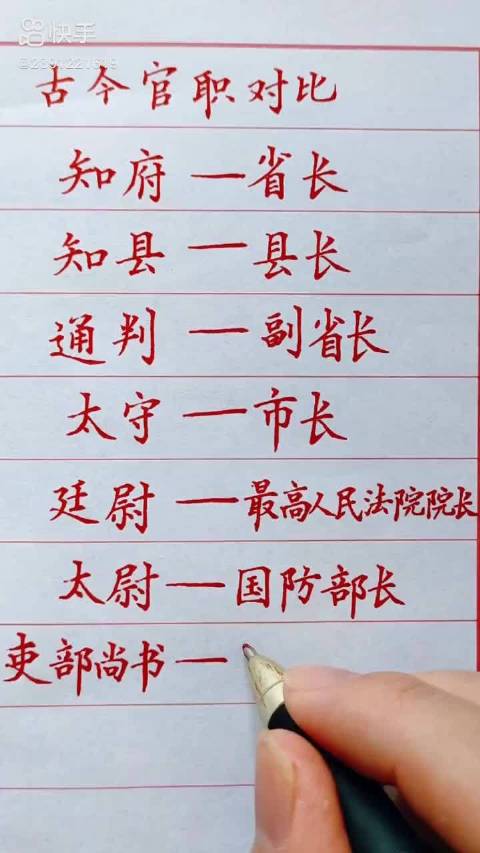 快手
古今官职对比
知府一省长
知县一县长
通判一副省长
太守一市长
廷尉一最高人民法院院长
太尉一国防部长
吏部尚书一